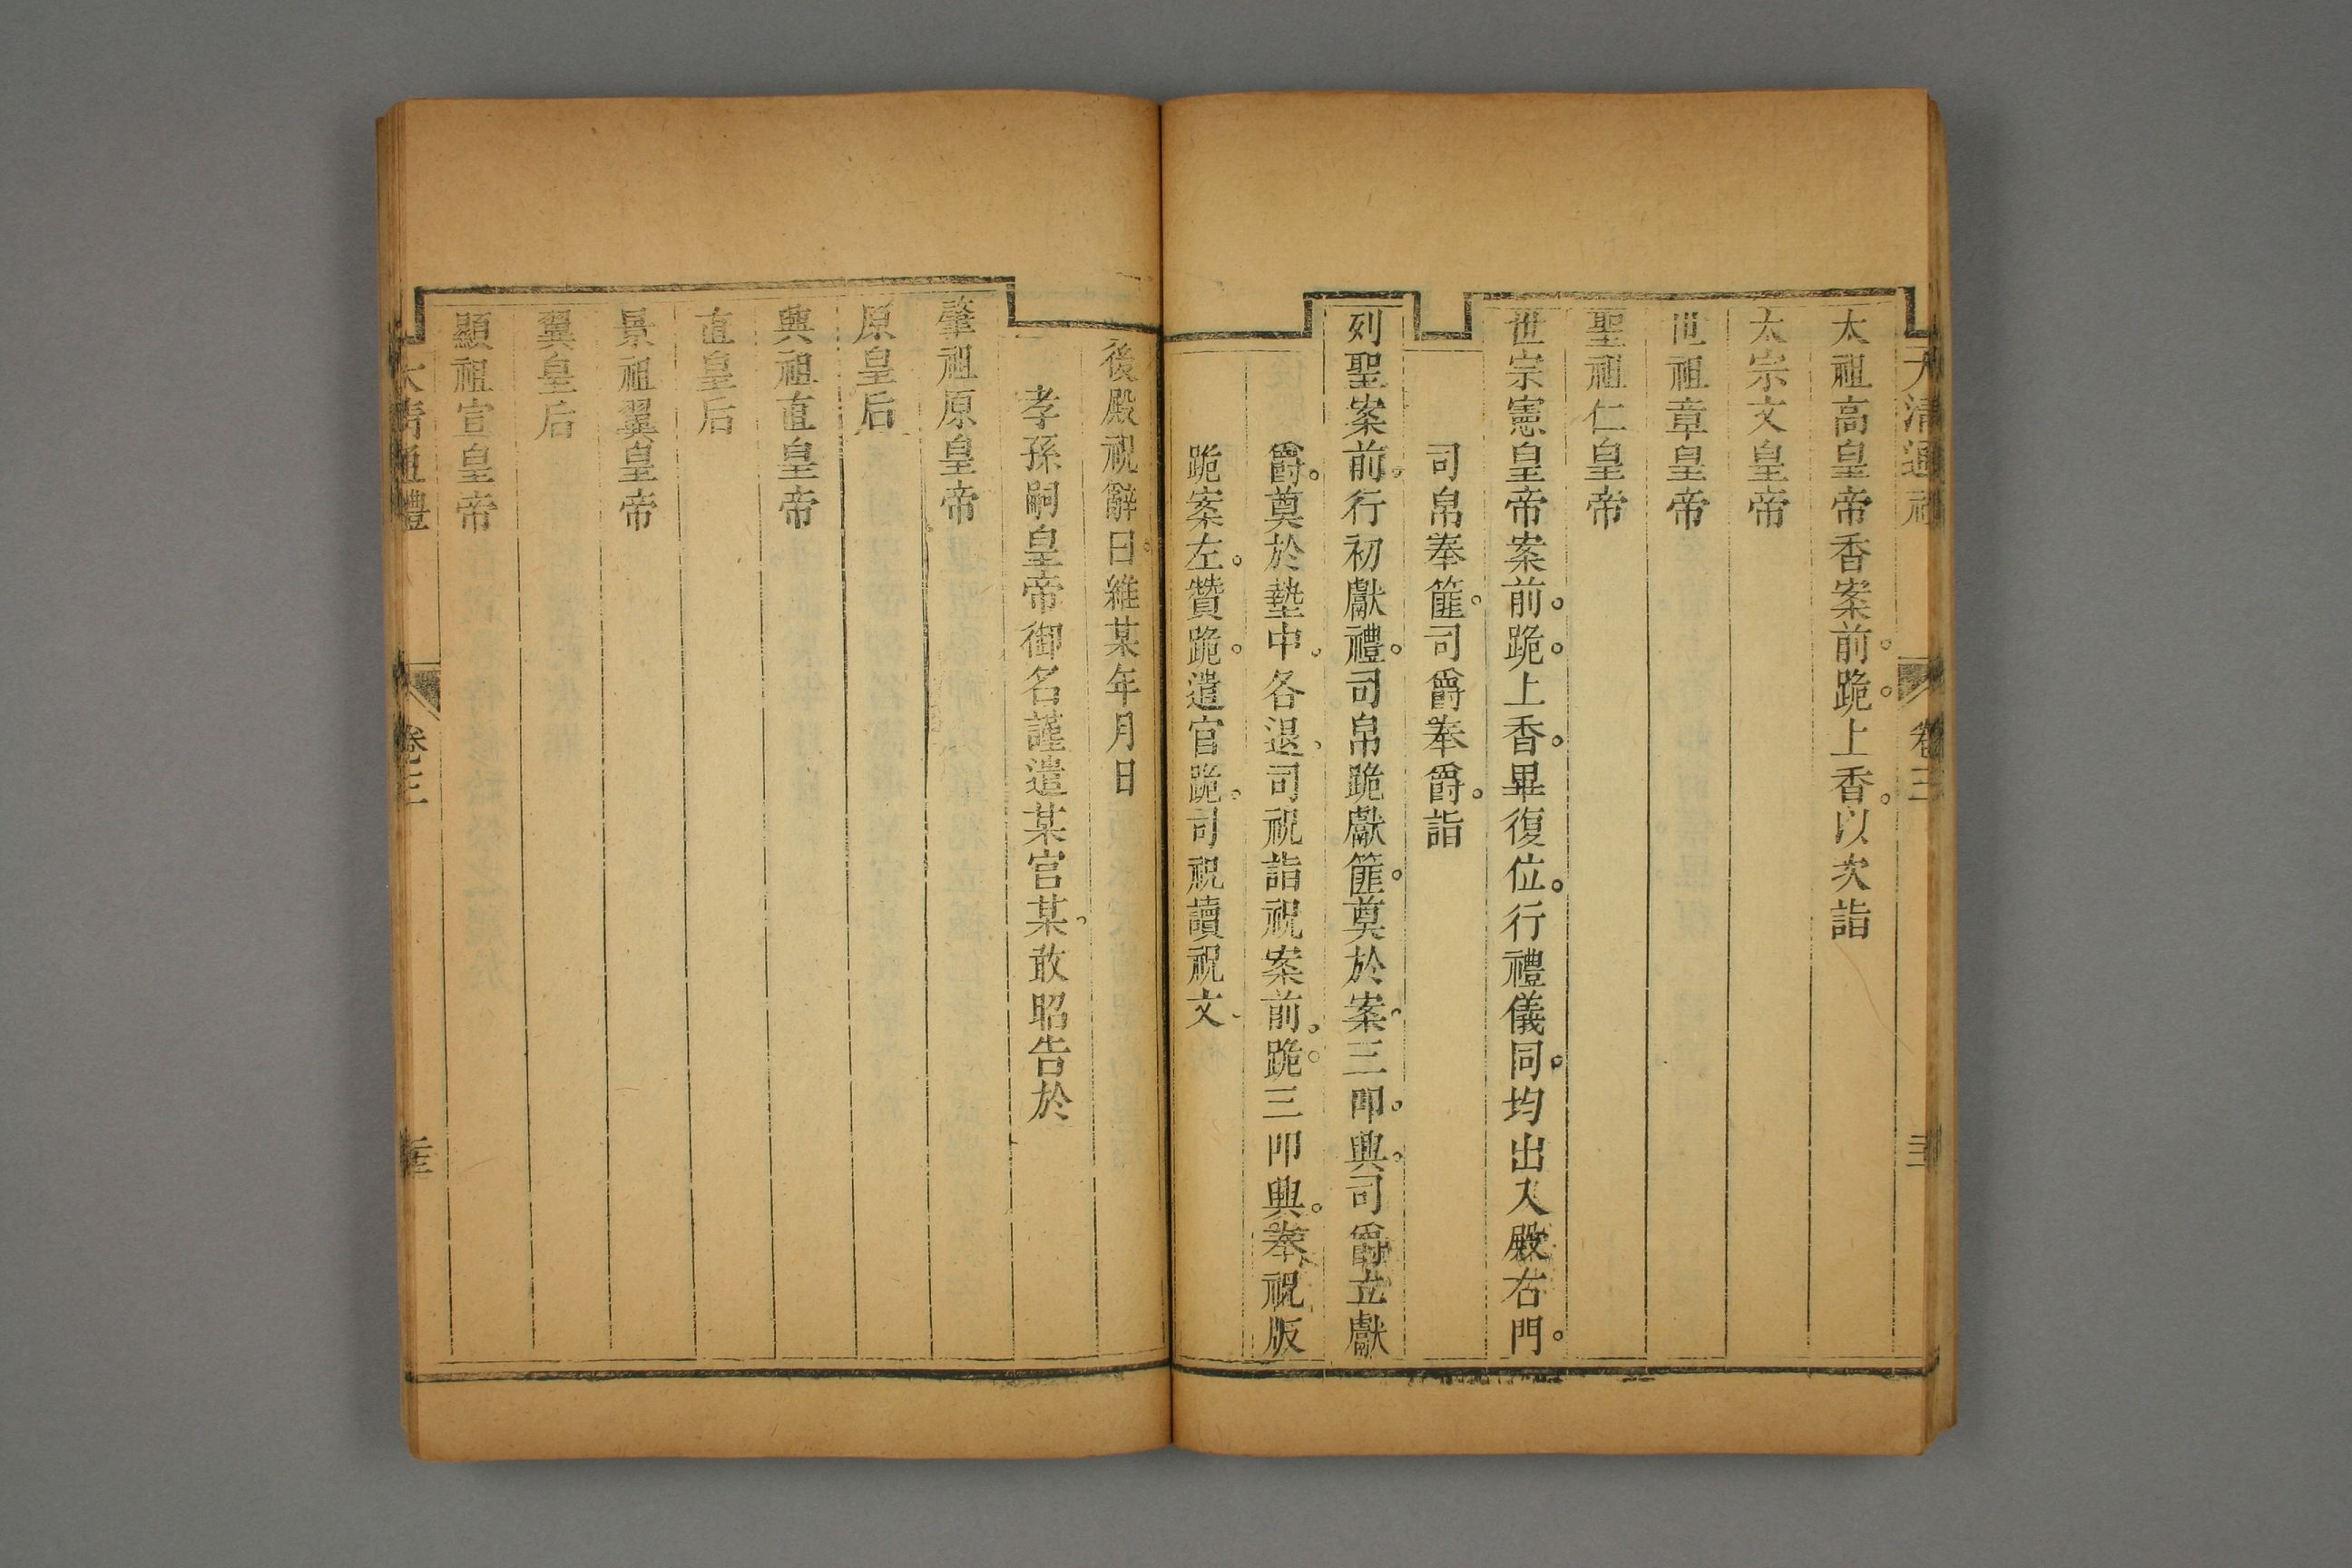 大清通禮
卷三
太祖高皇帝香案前。跪。上香。以次詣
太宗文皇帝
世祖章皇帝
聖祖仁皇帝
世宗憲皇帝案前。跪。上香。畢復位。行禮儀同。均出入殿右門。
司帛奉篚。司爵奉爵。詣
列聖案前。行初獻禮。司帛跪獻篚。奠於案。三叩。興。司爵立獻
爵。奠於墊中。各退、司祝詣祝案前。跪。三叩興。奉祝版
跪案左。贊跪。遣官跪。司祝讀祝文、
後殿祝辭曰。維某年月日
孝孫嗣皇帝御名謹遣某官某。敢昭告於
肇祖原皇帝
原皇后
興祖直皇帝
直皇后
景祖翼皇帝
翼皇后
顯祖宣皇帝
大清通禮
卷三